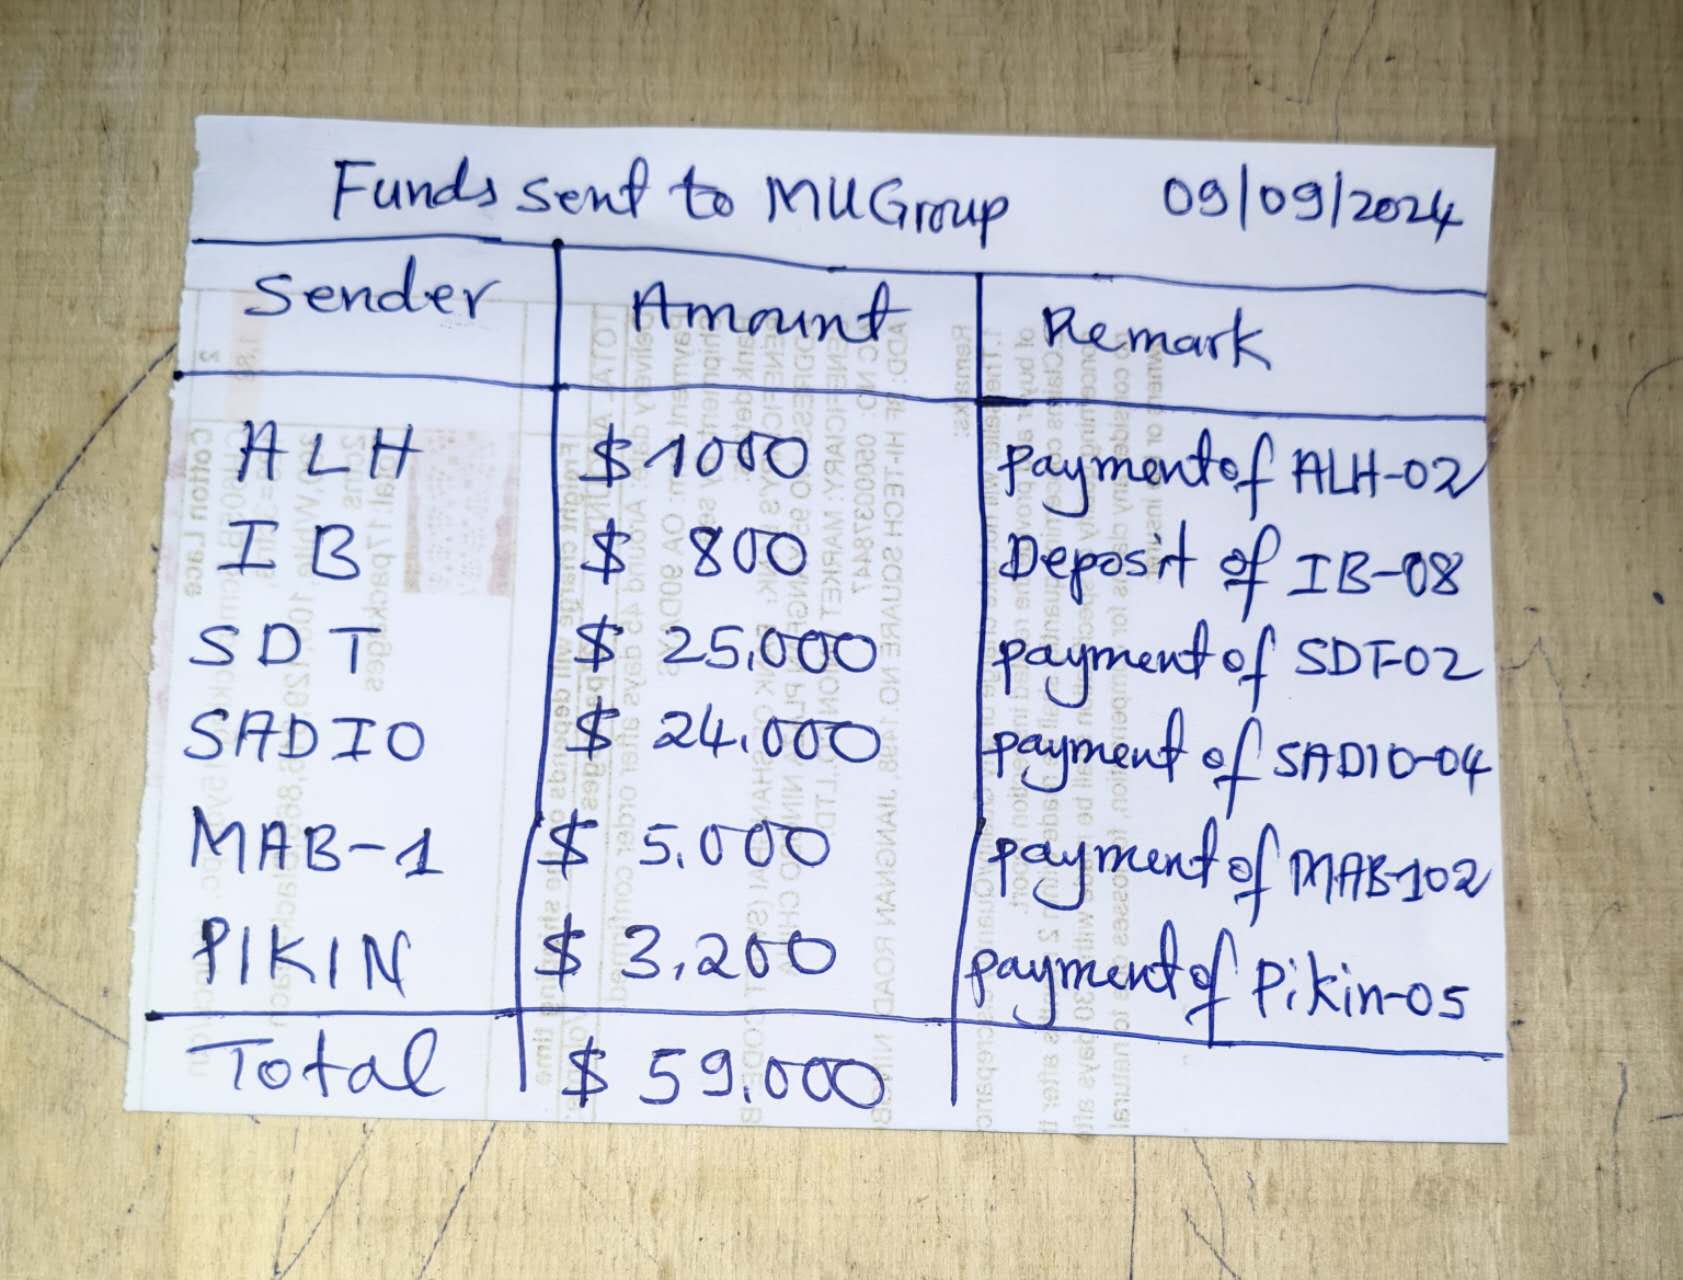 Funds sent to MUGroup 09/09/2024
Sender Amount Remark
ALH $1000 payment of ALH-02
IB $ 800 Deposit of IB-08
SDT $ 25,000 payment of SDT-02
SADIO $ 24,000 payment of SADIO-04
MAB-1 $ 5,000 payment of MAB-102
PIKIN $ 3,200 payment of Pikin-05
Total $ 59,000